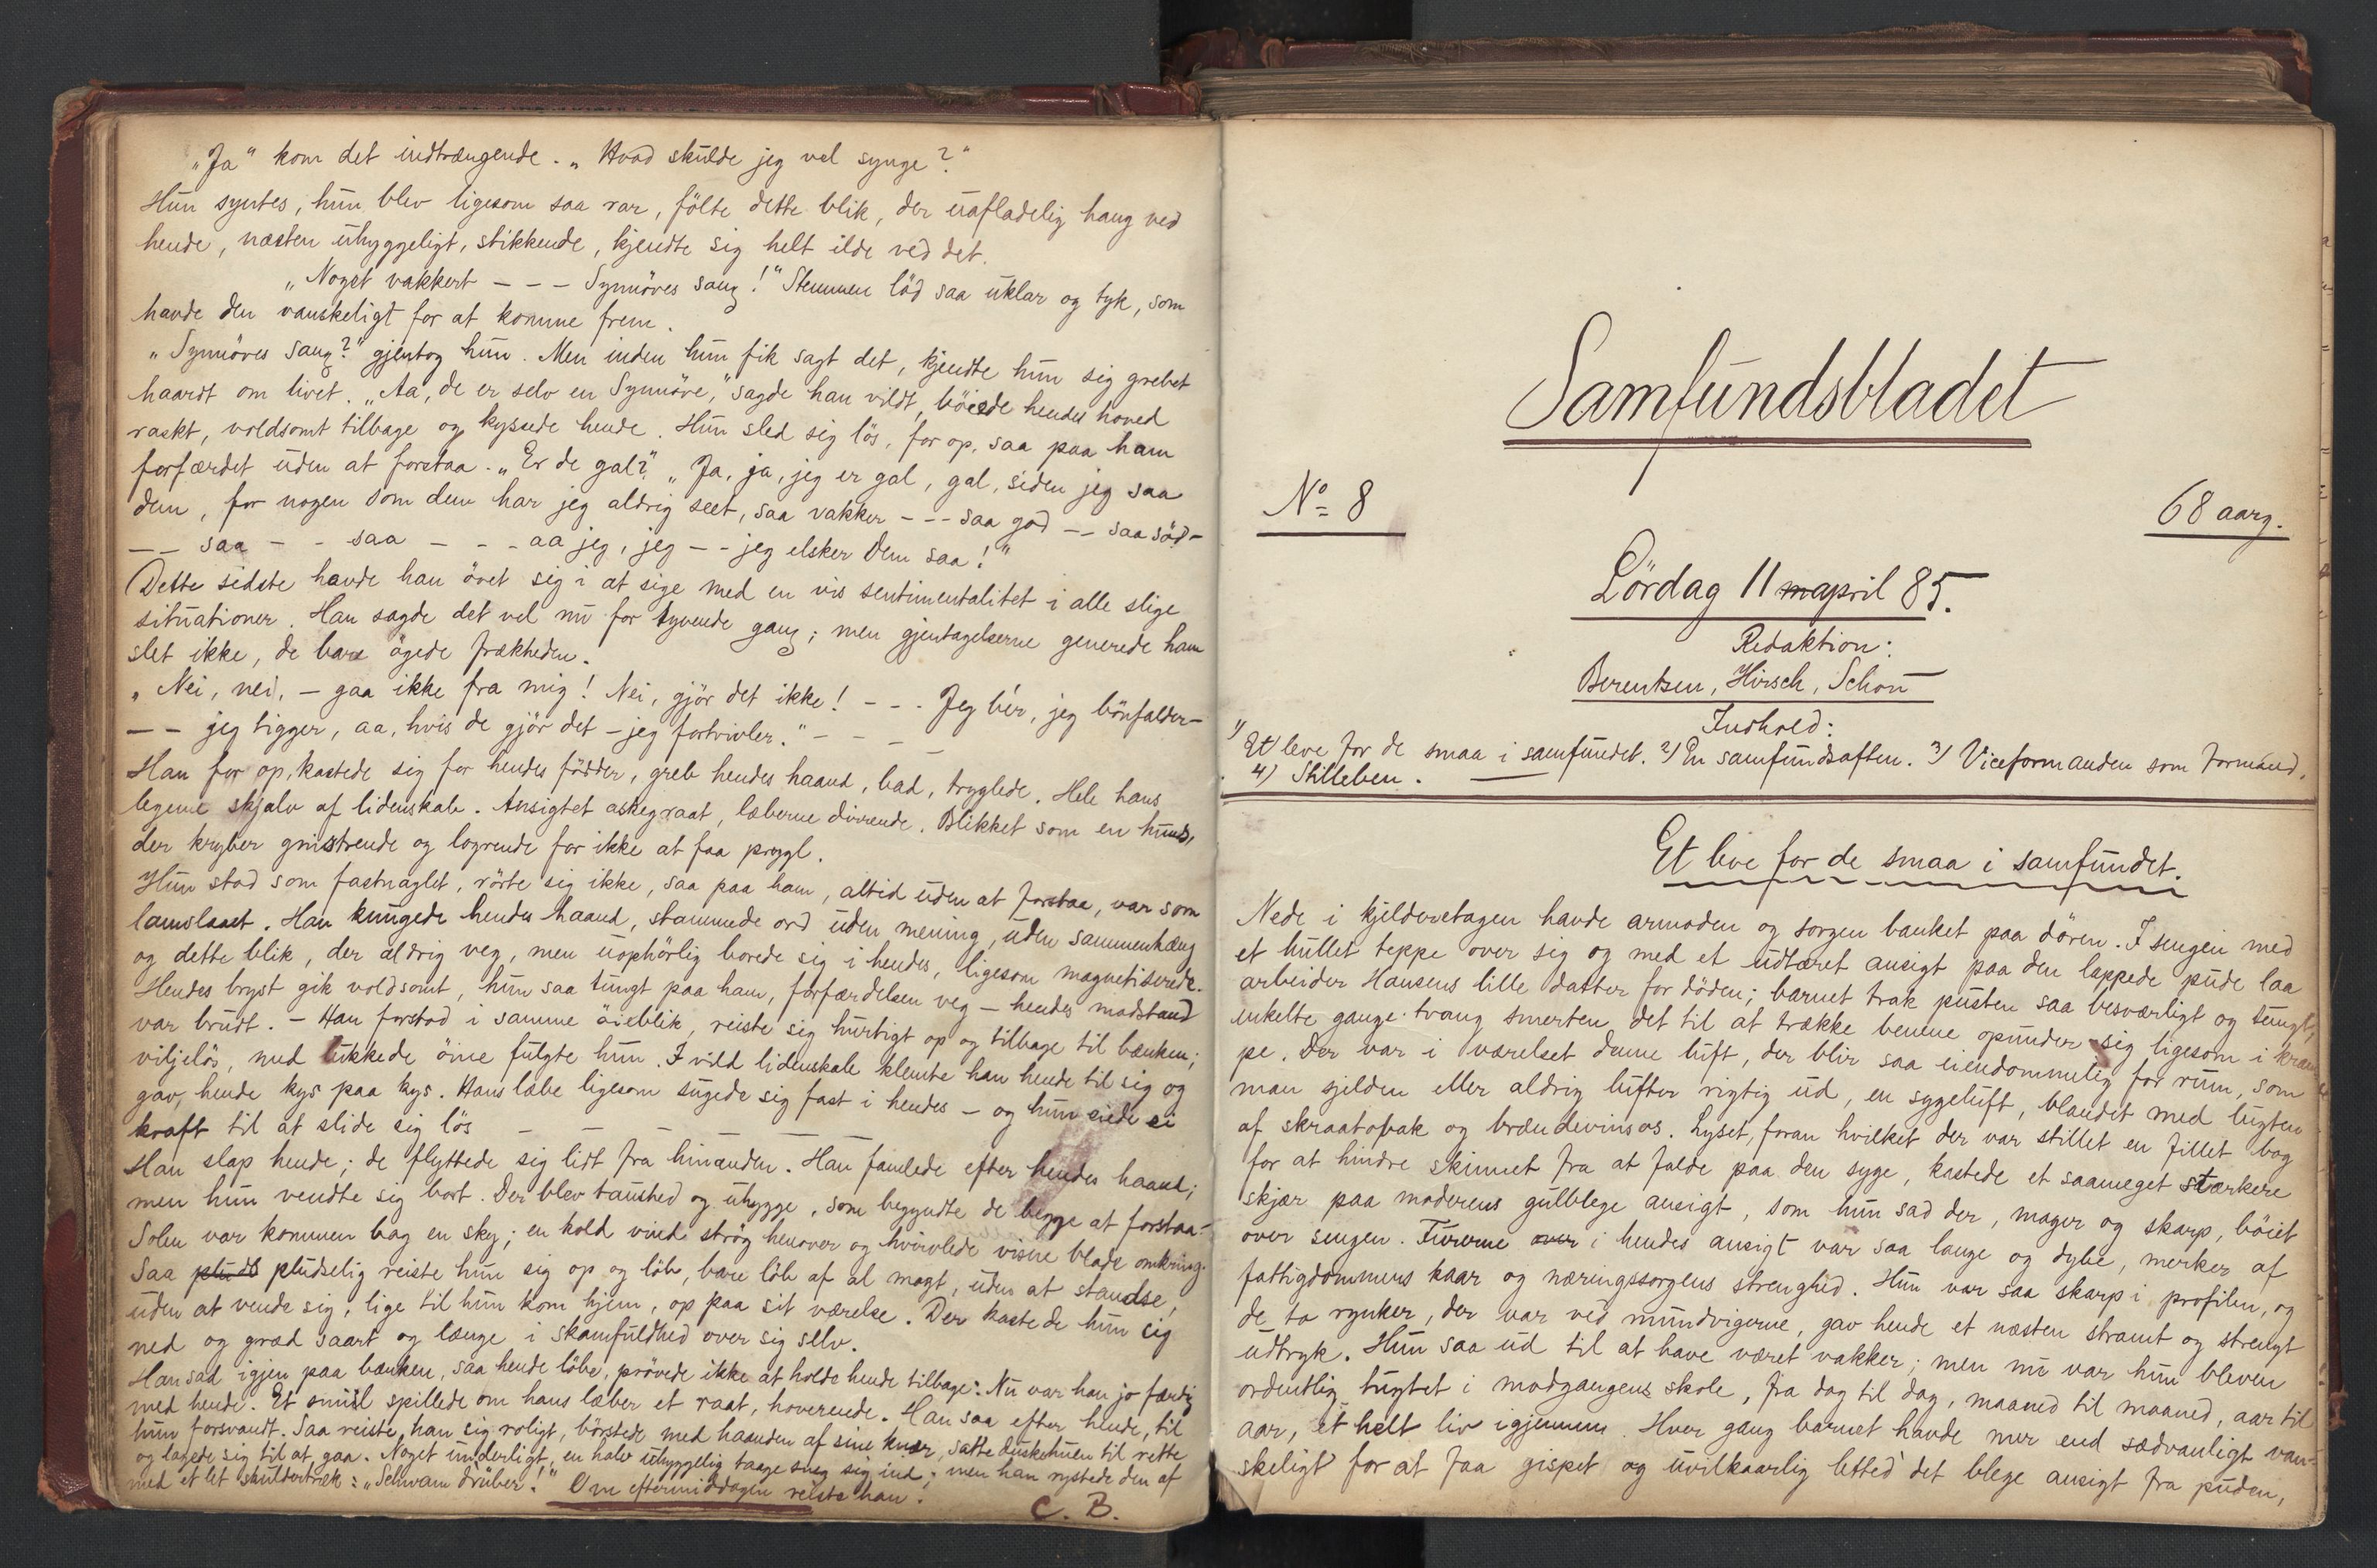 „Ja“ kom det indtrængende. „Hvad skulde jeg vel synge?“
Hun syntes, hun blev ligesom saa rar, fölte dette blik, der uafladelig hang ved
hende, næsten uhyggeligt, stikkende, kjendte sig helt ilde ved det.
„Noget vakkert – – – Synnöves sang!“ Stemmen löd saa uklar og tyk, som
havde den vanskeligt for at komme frem.
„Synnöves sang?“ gjentog hun. Men inden hun fik sagt det, kjendte hun sig grebet
haardt om livet. „Aa, de er selv en Synnöve,“ sagde han vildt, böiede hendes hoved
raskt, voldsomt tilbage og kyssede hende. Hun sled sig lös, for op, saa paa ham
forfærdet uden at forstaa. „Er de gal?“ „Ja, ja, jeg er gal, gal, siden jeg saa
dem, for nogen som dem har jeg aldrig seet, saa vakker – – – saa god – – saa söd –
– – saa – – saa – – – aa jeg, jeg – – jeg elsker Dem saa!“
Dette sidste havde han övet sig i at sige med en vis sentimentalitet i alle slige
situationer. Han sagde det vel nu for tyvende gang; men gjentagelserne generede ham
slet ikke, de bare ögede frækheden.
„Nei, nei, – gaa ikke fra mig! Nei, gjör det ikke! – – – Jeg bér, jeg bönfalder –
– – jeg tigger, aa, hvis de gjör det – jeg fortvivler.“ – – – –
Han for op, kastede sig for hendes födder, greb hendes haand, bad, tryglede. Hele hans
legeme skjalv af lidenskab. Ansigtet askegraat, læberne divrende. Blikket som en hunds,
der kryber gnistrende og logrende for ikke at faa prygl.
Hun stod som fastnaglet, rörte sig ikke, saa paa ham, altid uden at forstaa, var som
lamslaaet. Han knugede hendes haand, stammede ord uden mening, uden sammenhæng
og dette blik, der aldrig veg, men uophörlig borede sig i hendes, ligesom magnetiserede.
Hendes bryst gik voldsomt, hun saa tungt paa ham, forfærdelsen veg – hendes modstand
var brudt. – Han forstod i samme öieblik, reiste sig hurtigt op og tilbage til bænken;
viljelös, med lukkede öine fulgte hun. I vild lidenskab klemte han hende til sig og
gav hende kys paa kys. Hans læbe ligesom sugede sig fast i hendes – og hun eiede ei
kraft til at slide sig lös – – – – – –
Han slap hende; de flyttede sig lidt fra hinanden. Han famlede efter hendes haand;
men hun vendte sig bort. Der blev taushed og uhygge, som begyndte de begge at forstaa.
Solen var kommen bag en sky; en kold vind strög henover og hvirvlede visne blade omkring.
Saa pluds pludselig reiste hun sig op og löb, bare löb af al magt, uden at standse,
uden at vende sig, lige til hun kom hjem, op paa sit værelse. Der kastede hun sig
ned og græd saart og længe i skamfuldhed over sig selv.
Han sad igjen paa bænken, saa hende löbe, prövede ikke at holde hende tilbage. Nu var han jo færdig
med hende. Et smiil spillede om hans læber et raat, hoverende. Han saa efter hende, til
hun forsvandt. Saa reiste han sig roligt, börstede med haanden af sine knær, satte duskehuen til rette
og lagede sig til at gaa. Noget underligt, en halv uhyggelig taage sneg sig ind; men han rystede den af
med et let skuldertræk: „Schwam drüber!“ Om eftermiddagen reiste han.
C. B.
Samfundsbladet
No 8
68 aarg.
Lördag 11 mapril 85.
Redaktion:
Berentsen, Hirsch, Schou
Indhold:
1) Et leve for de smaa i samfundet. 2) En samfundsaften. 3) Viceformanden som formand.
4) Stilleben.
Et leve for de smaa i samfundet.
Nede i kjelderetagen havde armoden og sorgen banket paa dören. I sengen med
et hullet teppe over sig og med et udtæret ansigt paa den lappede pude laa
arbeider Hansens lille datter for döden; barnet trak pusten saa besværligt og tungt,
enkelte gange tvang smerten det til at trække benene opunder sig ligesom i kram
pe. Der var i værelset denne luft, der blir saa eiendommelig for rum, som
man sjelden eller aldrig lufter rigtig ud, en sygeluft, blandet med lugten
af skraatobak og brændevinsos. Lyset, foran hvilket der var stillet en fillet bog
for at hindre skinnet fra at falde paa den syge, kastede et saameget stærkere
skjær paa moderens gulblege ansigt, som hun sad der, mager og skarp, böiet
over sengen. Furerne over i hendes ansigt var saa lange og dybe, merker af
fattigdommens kaar og næringssorgens strenghed. Hun var saa skarp i profilen, og
de to rynker, der var ved mundvigerne, gav hende et næsten stramt og strengt
udtryk. Hun saa ud til at have været vakker; men nu var hun bleven
ordentlig tugtet i modgangens skole, fra dag til dag, maaned til maaned, aar til
aar, et helt liv igjennem. Hver gang barnet havde mer end sædvanligt van-
skeligt for at faa gispet og uvilkaarlig letted det blege ansigt fra puden,